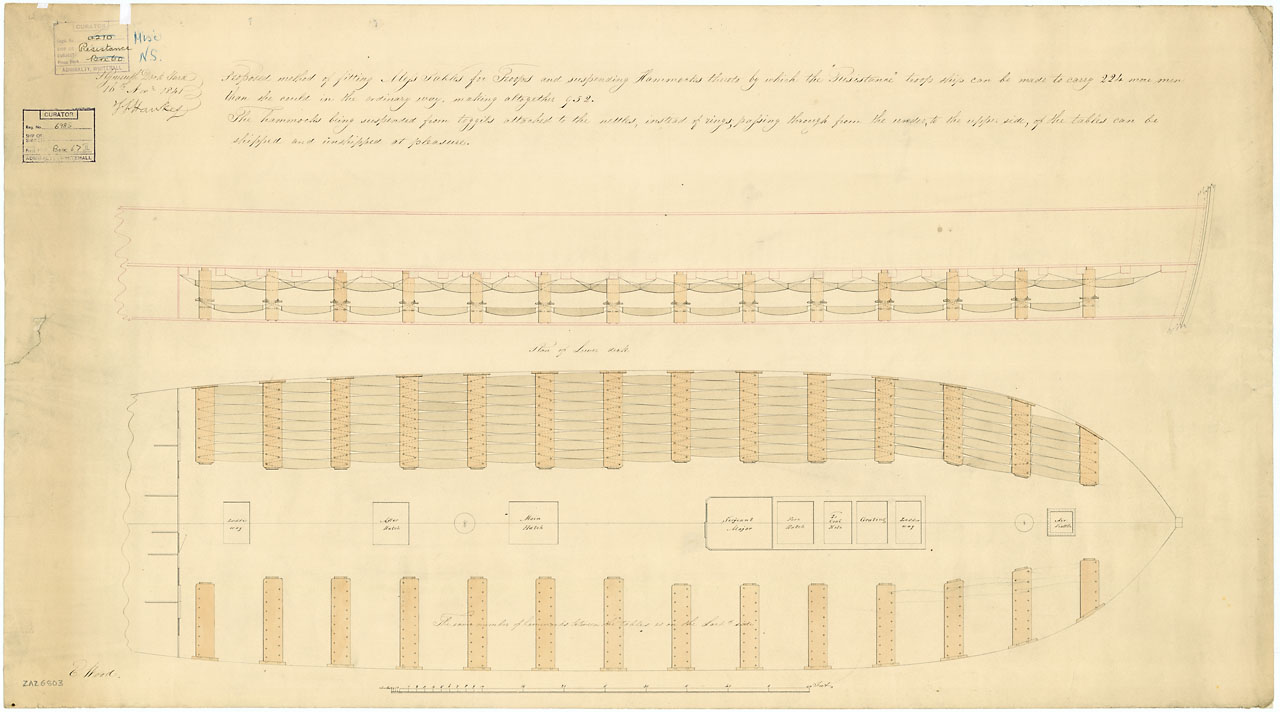 CURATOR
0210
Resistance
Box 60
ADMIRALTY, WHITEHALL
Misc
N.S.
Plymouth Dock Yard
16th Novr 1841
CURATOR
Reg. No. 6986
SHIP OR
Box 67
ADMIRALTY WHITEHALL
Proposed method of fitting Mess Tables for Troops and suspending Hammocks thereto by which the "Resistance" troop ship can be made to carry 224 more men
than she could in the ordinary way, making altogether 952.
The hammocks being suspended from toggils attached to the nettles, instead of rings, passing through from the under, to the upper side, of the tables can be
shipped and unshipped at pleasure.
Plan of Lower deck
Ladder way
After Hatch
Main Hatch
Serjeant Major
Fore Hatch
To Coal Hole
Grating
Ladder way
Air Scuttle
The same number of hammocks between the tables as on the Larbd side
E Wood.
ZAZ6903
Feet